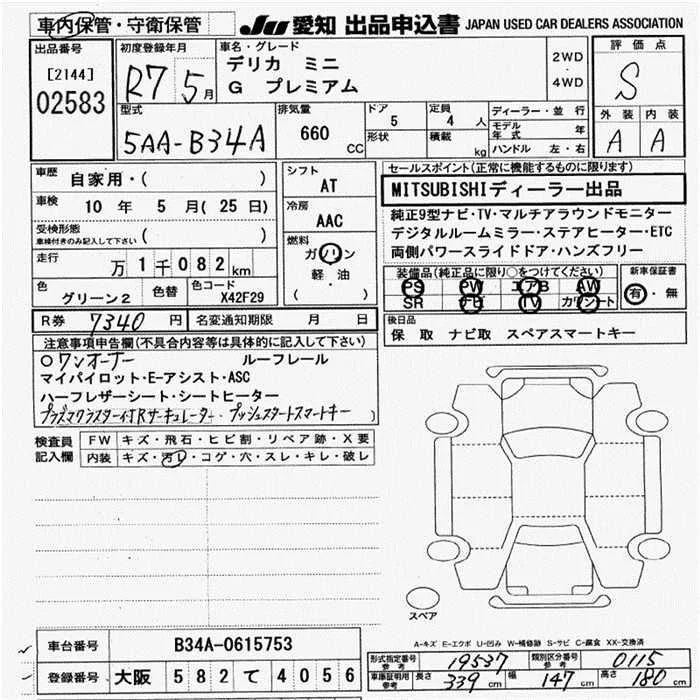 車内保管・守衛保管
JU 愛知 出品申込書 JAPAN USED CAR DEALERS ASSOCIATION
出品番号
[2144]
02583
初度登録年月
R7 5月
車名・グレード
デリカ ミニ
G プレミアム
2WD
・
4WD
評価点
S
外装 内装
A A
型式
5AA-B34A
排気量
660 CC
ドア
5
形状
定員
4 人
積載
kg
ディーラー・並行
モデル年式 年
ハンドル 左・右
車歴
自家用・( )
車検
10年 5月(25日)
受検形態
車検付きのみ記入して下さい ( )
走行
万1千082km
色
グリーン2
色替
色コード
X42F29
シフト
AT
冷房
AAC
燃料
ガソリン
軽・油
( )
セールスポイント(正常に機能するものに限ります)
MITSUBISHIディーラー出品
純正9型ナビ・TV・マルチアラウンドモニター
デジタルルームミラー・ステアヒーター・ETC
両側パワースライドドア・ハンズフリー
装備品(純正品に限り○をつけてください)
PS PW エアB AW
SR ナビ TV カワシート
新車保証書
有・無
R券 7340円
名変通知期限 月 日
後日品
保 取 ナビ取 スペアスマートキー
注意事項申告欄(不具合内容等は具体的に記入して下さい)
○ワンオーナー ルーフレール
マイパイロット・E-アシスト・ASC
ハーフレザーシート・シートヒーター
プラズマクラスター付リヤサーキュレーター・プッシュスタートスマートキー
検査員記入欄
FW キズ・飛石・ヒビ割・リペア跡・X要
内装 キズ・汚レ・コゲ・穴・スレ・キレ・破レ
スペア
A-キズ E-エクボ U-凹み W-補修跡 S-サビ C-腐食 XX-交換済
車台番号 B34A-0615753
登録番号 大阪 582 て 4056
形式指定番号 参考 19537 類別区分番号 参考 0115
車庫証明用 参考 長さ 339cm 幅 147cm 高さ 180cm